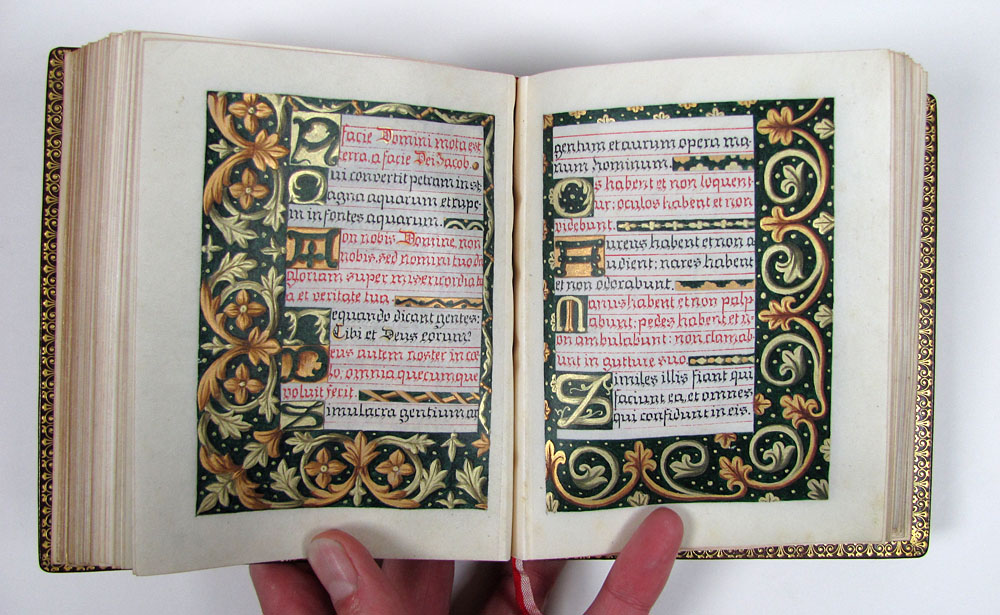 A facie Domini mota est
terra, a facie Dei Jacob.
Qui convertit petram in st
agna aquarum et rupe
m in fontes aquarum.
Non nobis, Domine, non
nobis, sed nomini tuo da
gloriam super misericordia tu
a et veritate tua.
Nequando dicant gentes:
Ubi et Deus eorum?
Deus autem noster in cœ
lo, omnia quecumque
voluit fecit.
Simulacra gentium ar
gentum et aurum opera ma
num hominum.
Os habent et non loquent
ur: oculos habent et non
videbunt.
Aures habent et non a
udient: nares habent
et non odorabunt.
Manus habent et non palp
abunt: pedes habent, et n
on ambulabunt: non clamab
unt in guture suo
Similes illis fiant qui
faciunt ea, et omnes
qui confidunt in eis.